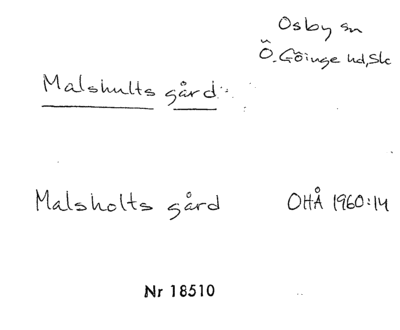 Osby sn
Ö. Göinge hd, Sk
Malshults gård
Malsholts gård OHÅ 1960:14
Nr 18510